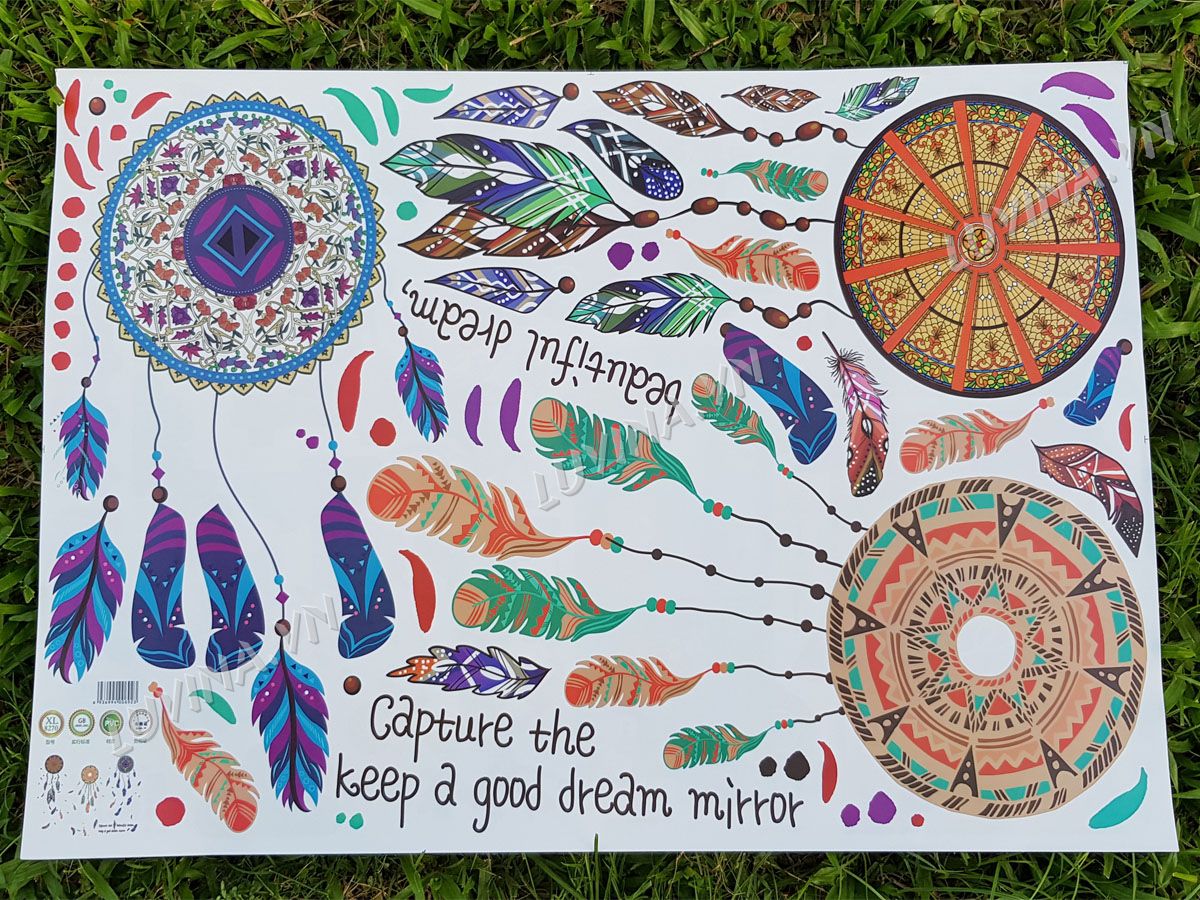 LUVINA.VN
LUVINA.VN
beautiful dream,
LUVINA.VN
LUVINA.VN
XL
8270
GB
PVC
Capture the
keep a good dream mirror